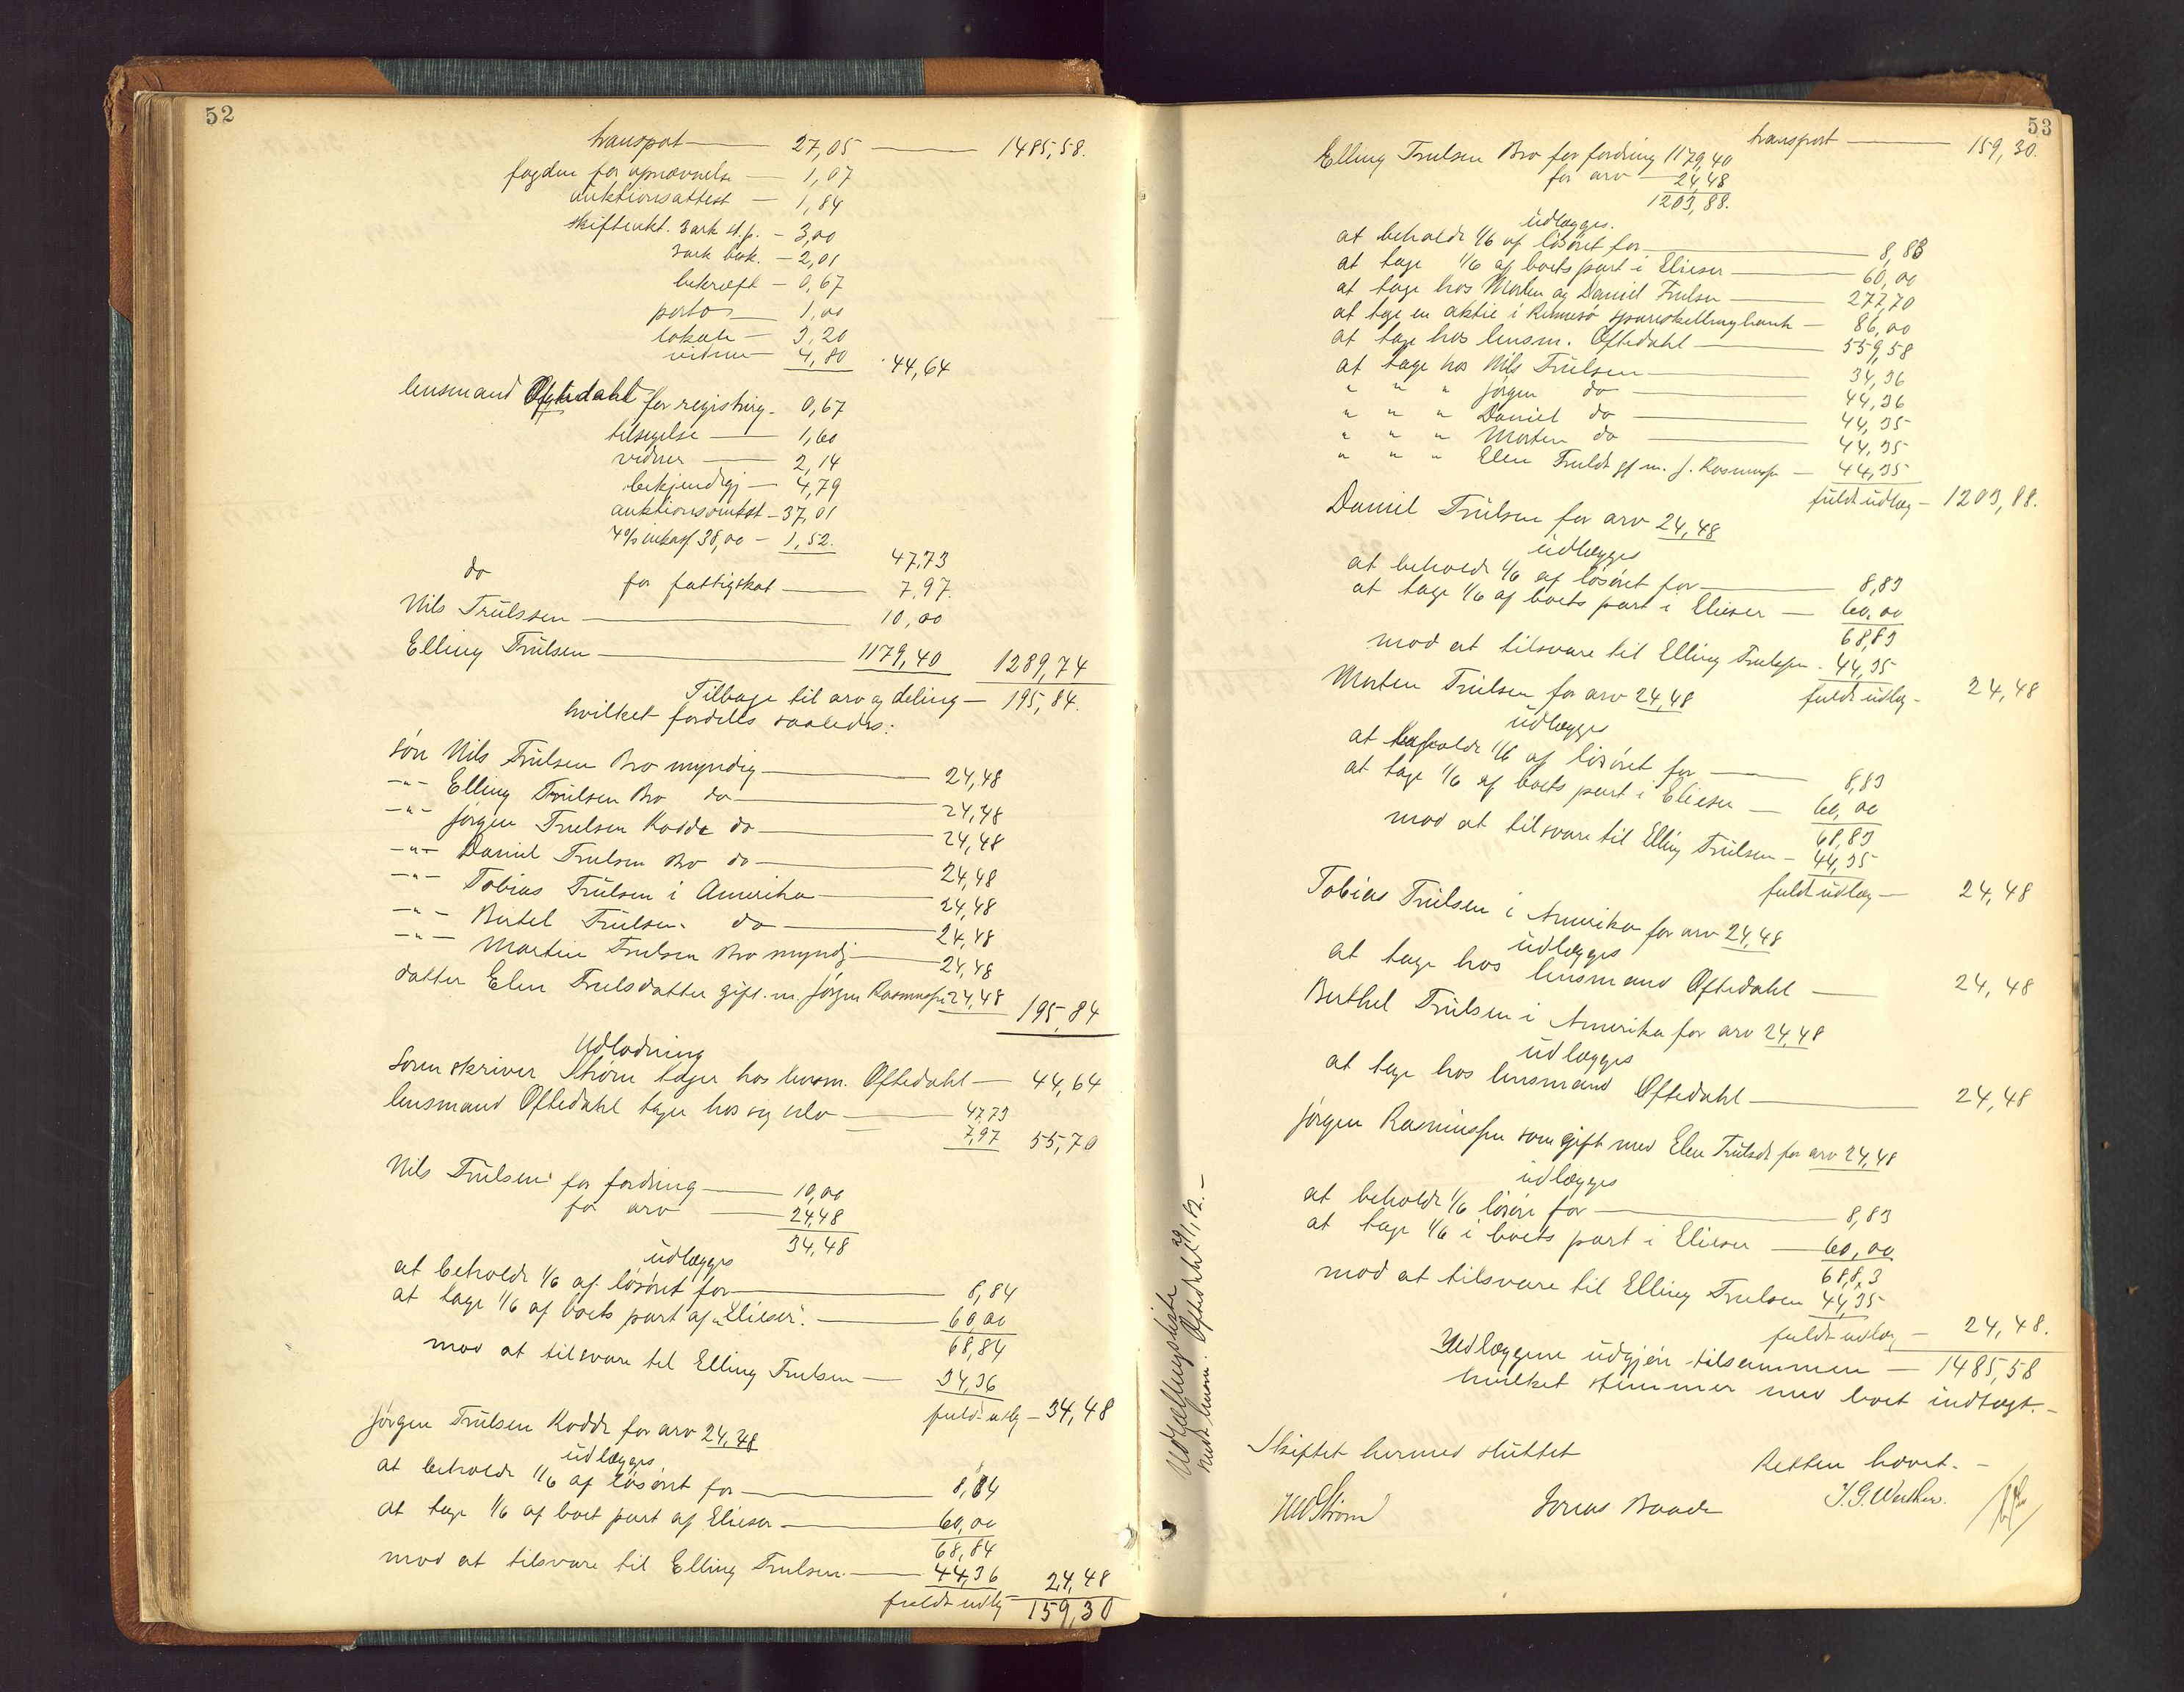 52
transport — 27,05 — 1485,58.
fogden for opnævnelse — 1,07
auktionsattest — 1,84
skifteakt. 3 ark st.p. — 3,00
3 ark besk. — 2,01
bekræft — 0,67
porto — 1,00
lokale — 3,20
vidner — 4,80 44,64
lensmand Oftedahl for registrirg. 0,67
tilsigelse — 1,60
vidner — 2,14
bekjendtgj — 4,79
auktionsomkost — 37,01
4% inkass 38,00 — 1,52.
47,73
do for fattigskat — 7,97.
Nils Trulssen — 10,00
Elling Trulsen — 1179,40 1289,74
Tilbage til arv og deling — 195,84.
hvilket fordeles saaledes:
søn Nils Trulsen Bro myndig — 24,48
-"- Elling Trulsen Bro do — 24,48
-"- Jørgen Trulsen Kodde do — 24,48
-"- Daniel Trulsen Bro do — 24,48
-"- Tobias Trulsen i Amerika — 24,48
-"- Bertel Trulsen do — 24,48
-"- Morten Trulsen Bro myndig — 24,48
datter Elen Trulsdatter gift. m. Jørgen Rasmussen 24,48 195,84
Udlodning
Sorenskriver Strøm tager hos lensm. Oftedahl — 44,64
lensmand Oftedahl tager hos sig selv — 47,73
7,97 55,70
Nils Trulsen for fordring — 10,00
for arv — 24,48
34,48
udlægges
at beholde 1/6 af løsøret for — 8,84
at tage 1/6 af boets part af "Elieser". — 60,00
68,84
mod at tilsvare til Elling Trulsen — 34,36
fuldt udlæg — 34,48
Jørgen Trulsen Kodde for arv 24,48
udlægges
at beholde 1/6 af løsøret for — 8,84
at tage 1/6 af boet part af Elieser — 60,00
68,84
mod at tilsvare til Elling Trulsen — 44,36 24,48
fuldt udlæg 159,30
53
transport — 159,30.
Elling Trulsen Bro for fordring 1179,40
for arv — 24,48
1203,88.
udlægges.
at beholde 1/6 af løsøret for — 8,88
at tage 1/6 af boets part i Elieser — 60,00
at tage hos Morten og Daniel Trulsen — 277,70
at tage en aktie i Rennesø spareskillingbank — 86,00
at tage hos lensm. Oftedahl — 559,58
at tage hos Nils Trulsen — 34,36
" " " Jørgen do — 44,36
" " " Daniel do — 44,35
" " " Morten do — 44,35
" " " Elen Trulsdt gf m. J. Rasmussen — 44,35
fuldt udlæg — 1203,88.
Daniel Trulsen for arv 24,48
udlægges
at beholde 1/6 af løsøret for — 8,83
at tage 1/6 af boets part i Elieser — 60,00
68,83
mod at tilsvare til Elling Trulssen. 44,35
fuldt udlæg — 24,48
Morten Trulsen for arv 24,48
udlægges
at beholde 1/6 af løsøret for — 8,83
at tage 1/6 af boets part i Elieser — 60,00
68,83
mod at tilsvare til Elling Trulsen — 44,35
fuldt udlæg — 24,48
Tobias Trulsen i Amerika for arv 24,48
udlægges
at tage hos lensmand Oftedahl — 24,48
Berthel Trulsen i Amerika for arv 24,48
udlægges
at tage hos lensmand Oftedahl — 24,48
Jørgen Rasmussen som gift med Elen Trulsdt for arv 24,48
udlægges
at beholde 1/6 løsøre for — 8,83
at tage 1/6 i boets part i Elieser — 60,00
68,83
mod at tilsvare til Elling Trulsen 44,35
fuldt udlæg — 24,48.
Udlæggene udgjør tilsammen — 1485,58
hvilket stemmer med boet indtægt. —
Skiftet hermed sluttet
Retten hævet. —
Strøm Jonas Baade
Udtællingsliste
sendt lensm. Oftedahl